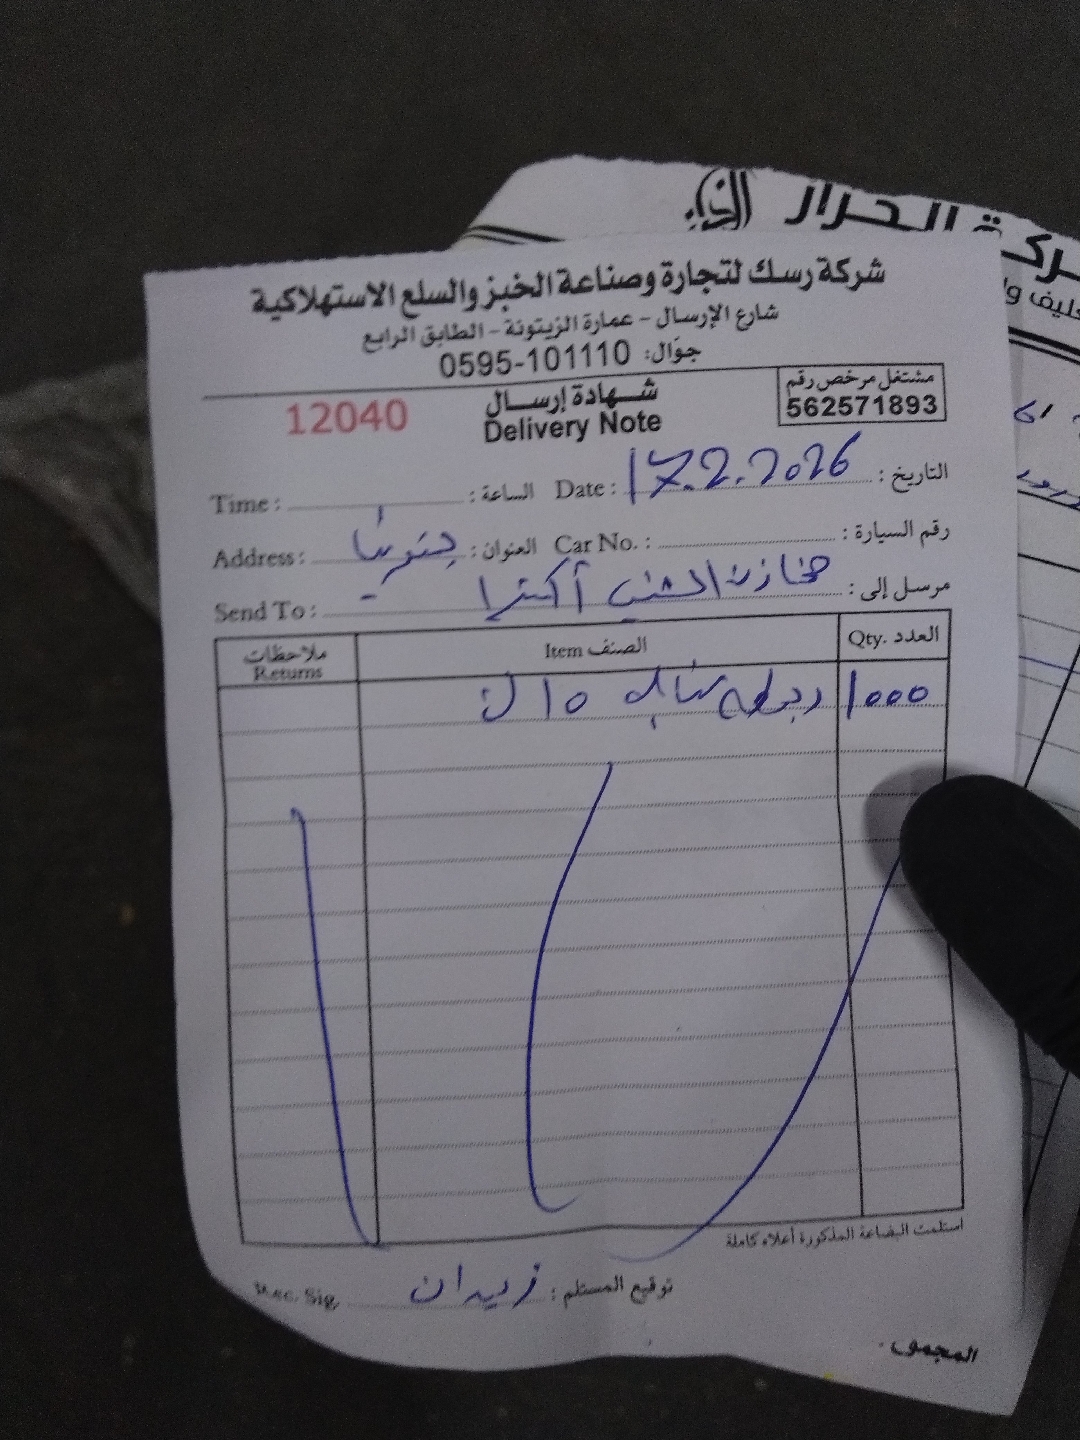 شركة الحراز
شركة رسك لتجارة وصناعة الخبز والسلع الاستهلاكية
شارع الإرسال - عمارة الزيتونة - الطابق الرابع
جوّال: 0595-101110
مشتغل مرخص رقم
562571893
شهادة إرسال
Delivery Note
12040
التاريخ: 17.2.2026 Date: الساعة: Time:
رقم السيارة: Car No.: العنوان: Address:
مرسل إلى: مخازن أكسترا Send To:
العدد Qty. الصنف Item ملاحظات Returns
1000 ربطة
استلمت البضاعة المذكورة أعلاه كاملة
توقيع المستلم: زيدان Rec. Sig.